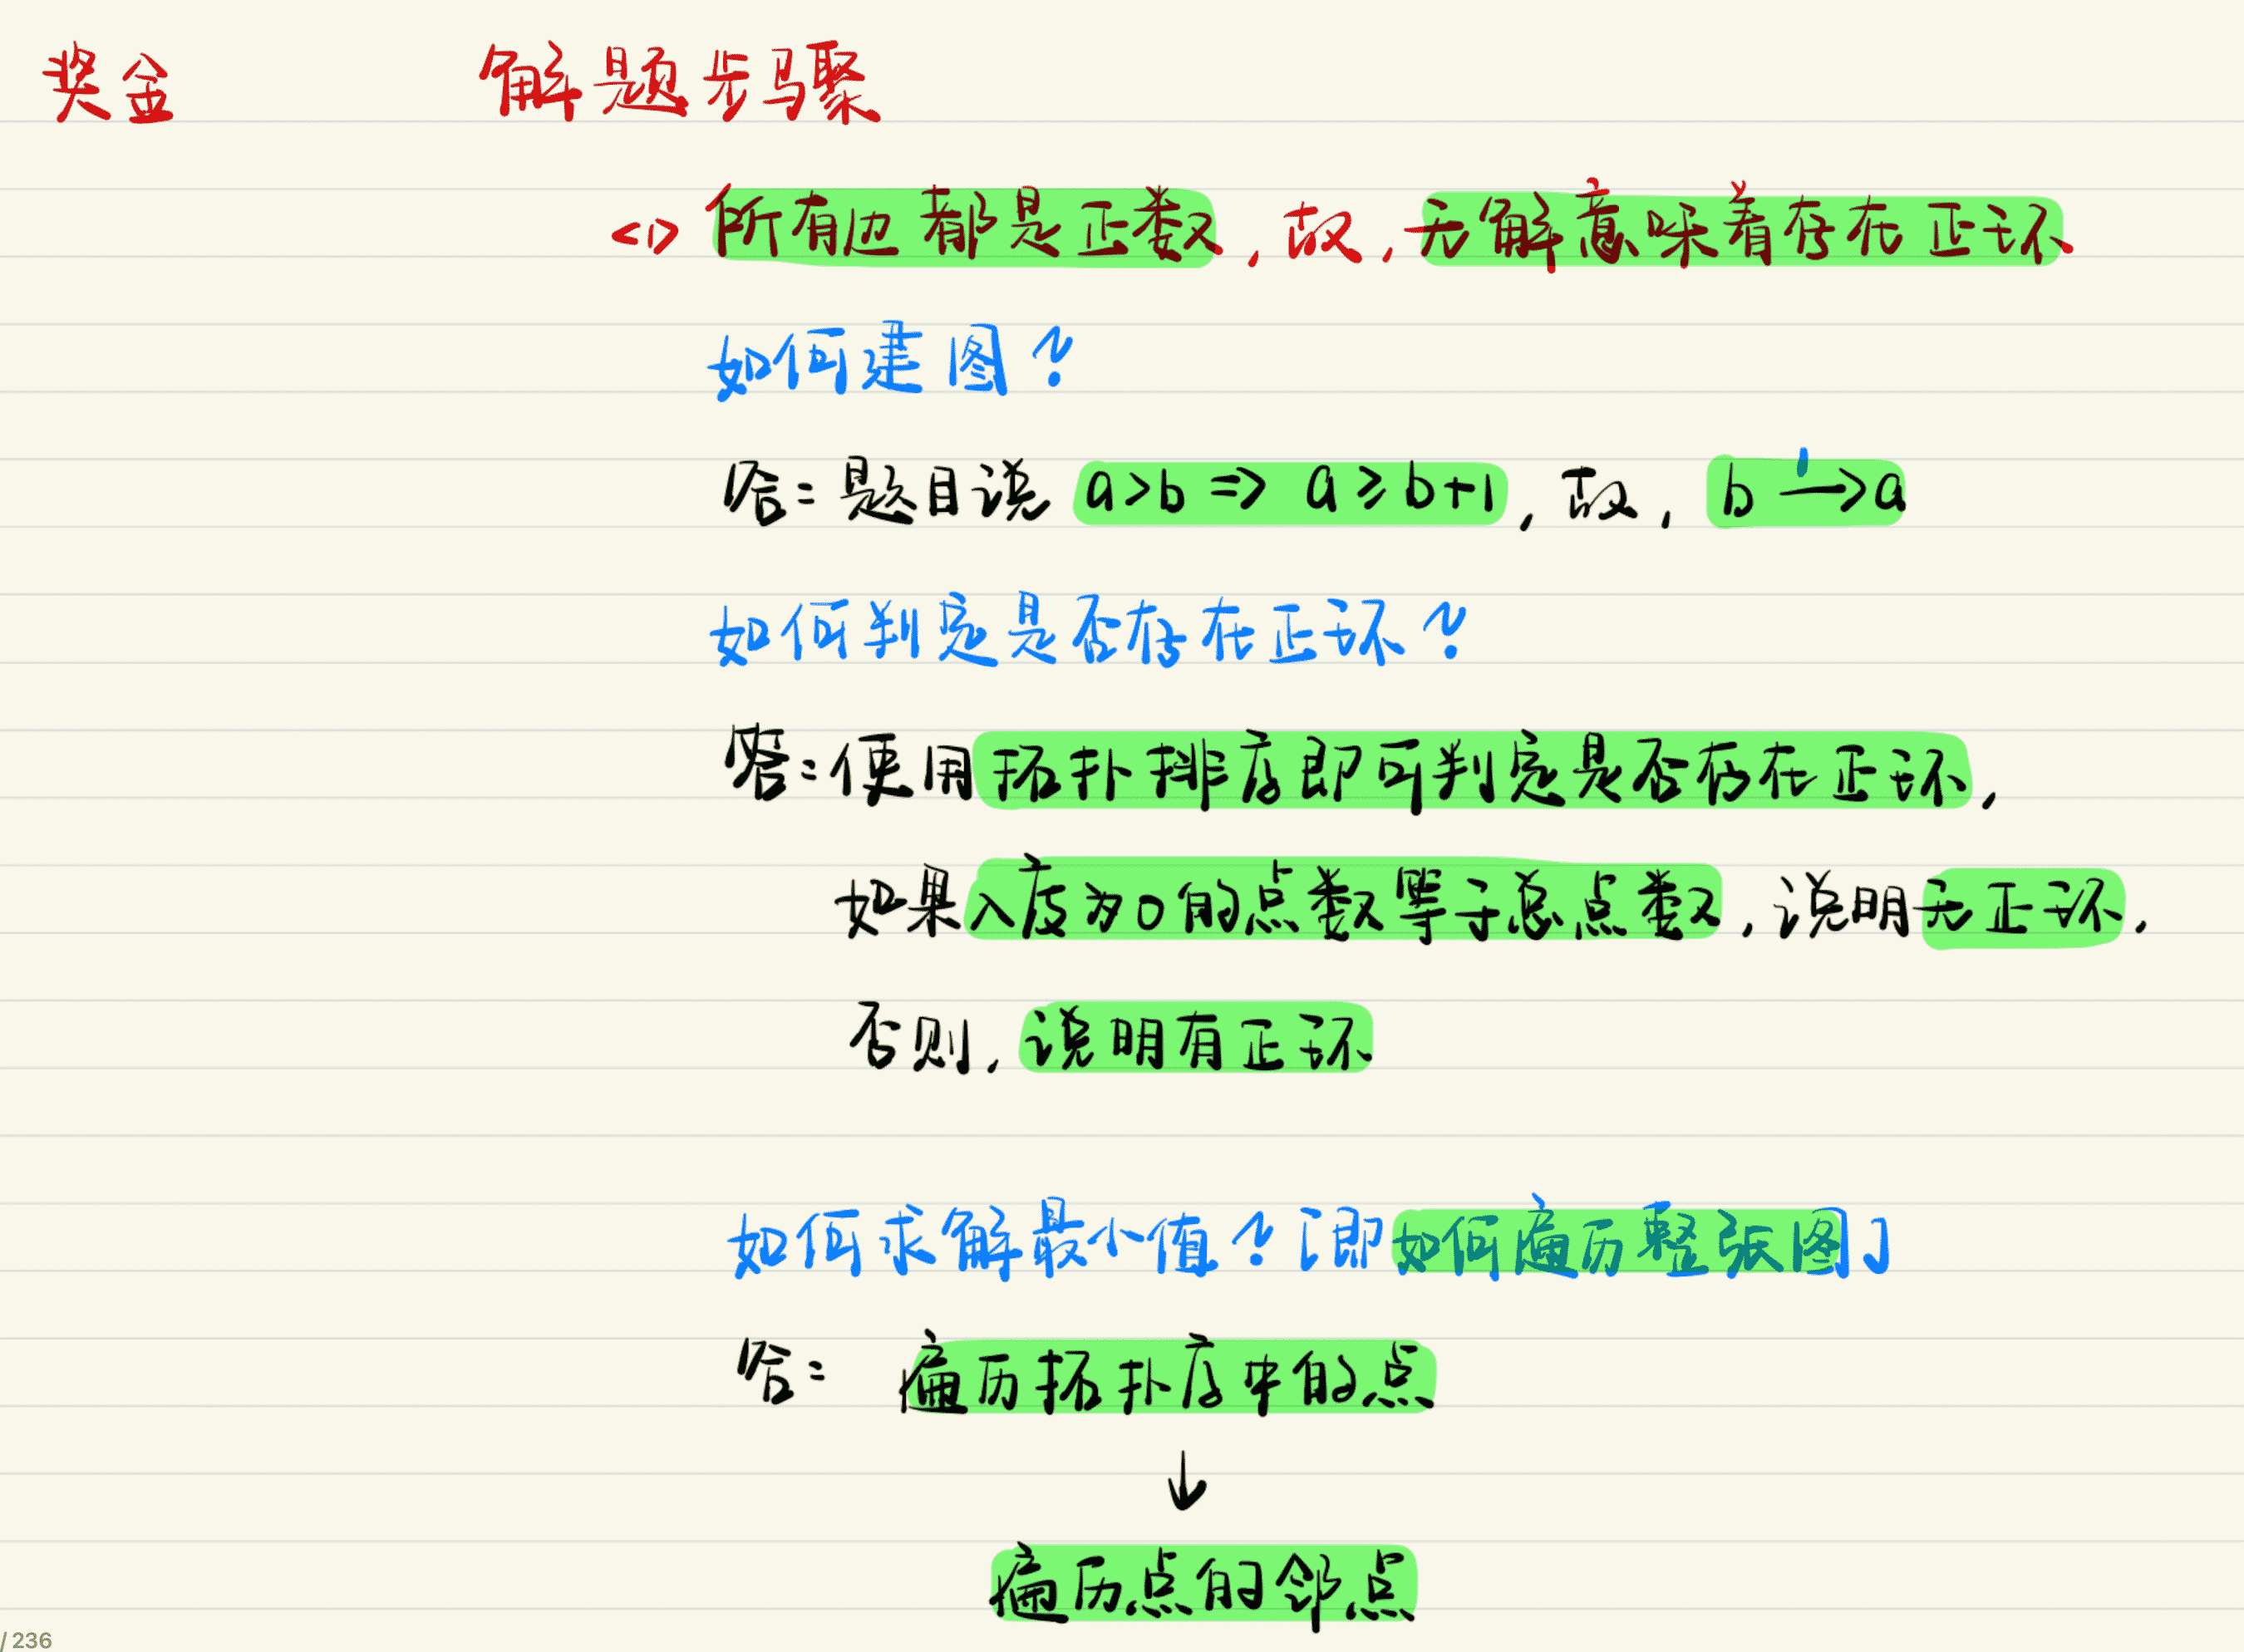 奖金 解题步骤
<1> 所有边都是正数，故，无解意味着存在正环
如何建图？
答：题目说 a>b => a≥b+1，故，b→a
1
如何判定是否存在正环？
答：使用拓扑排序即可判定是否存在正环，
如果入度为0的点数等于总点数，说明无正环，
否则，说明有正环
如何求解最小值？[即如何遍历整张图]
答： 遍历拓扑序中的点
↓
遍历点的邻点
/ 236